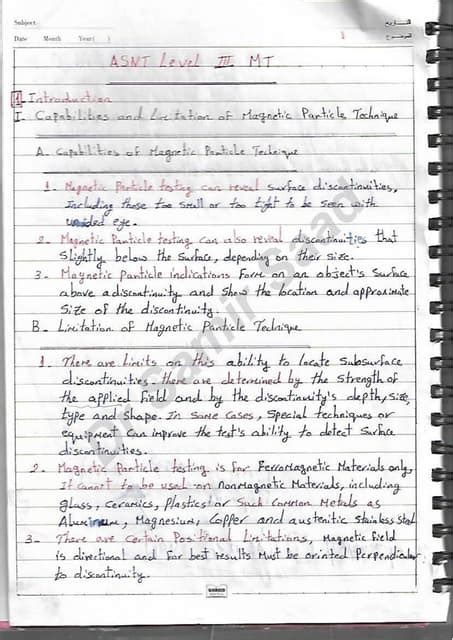 Subject:
التاريخ
Date Month Year( )
الموضوع
ASNT Level III MT
1. Introduction
I. Capabilities and Limitation of Magnetic Particle Technique
A. Capabilities of Magnetic Particle Technique
1. Magnetic Particle testing can reveal surface discontinuities,
Including those too small or too tight to be seen with
unaided eye.
2. Magnetic Particle testing can also reveal discontinuities that
Slightly below the Surface, depending on their Size.
3. Magnetic Particle indications Form on an object's Surface
above a discontinuity and Show the location and approximate
Size of the discontinuity.
B. Limitation of Magnetic Particle Technique
1. There are limits on this ability to locate Subsurface
discontinuities. there are determined by the Strength of
the applied field and by the discontinuity's depth, Size,
type and shape. In Some Cases, Special techniques or
equipment Can improve the test's ability to detect Surface
discontinuities.
2. Magnetic Particle testing is for FerroMagnetic Materials only,
It cannot to be used on nonmagnetic Materials, including
glass, Ceramics, Plastics or Such Common Metals as
Aluminum, Magnesium, Copper and austenitic Stainless Steel
3. There are Certain Positional Limitations, Magnetic field
is directional and for best results Must be orinted Perpendicular
to discontinuity.
Dr. Samir Saad